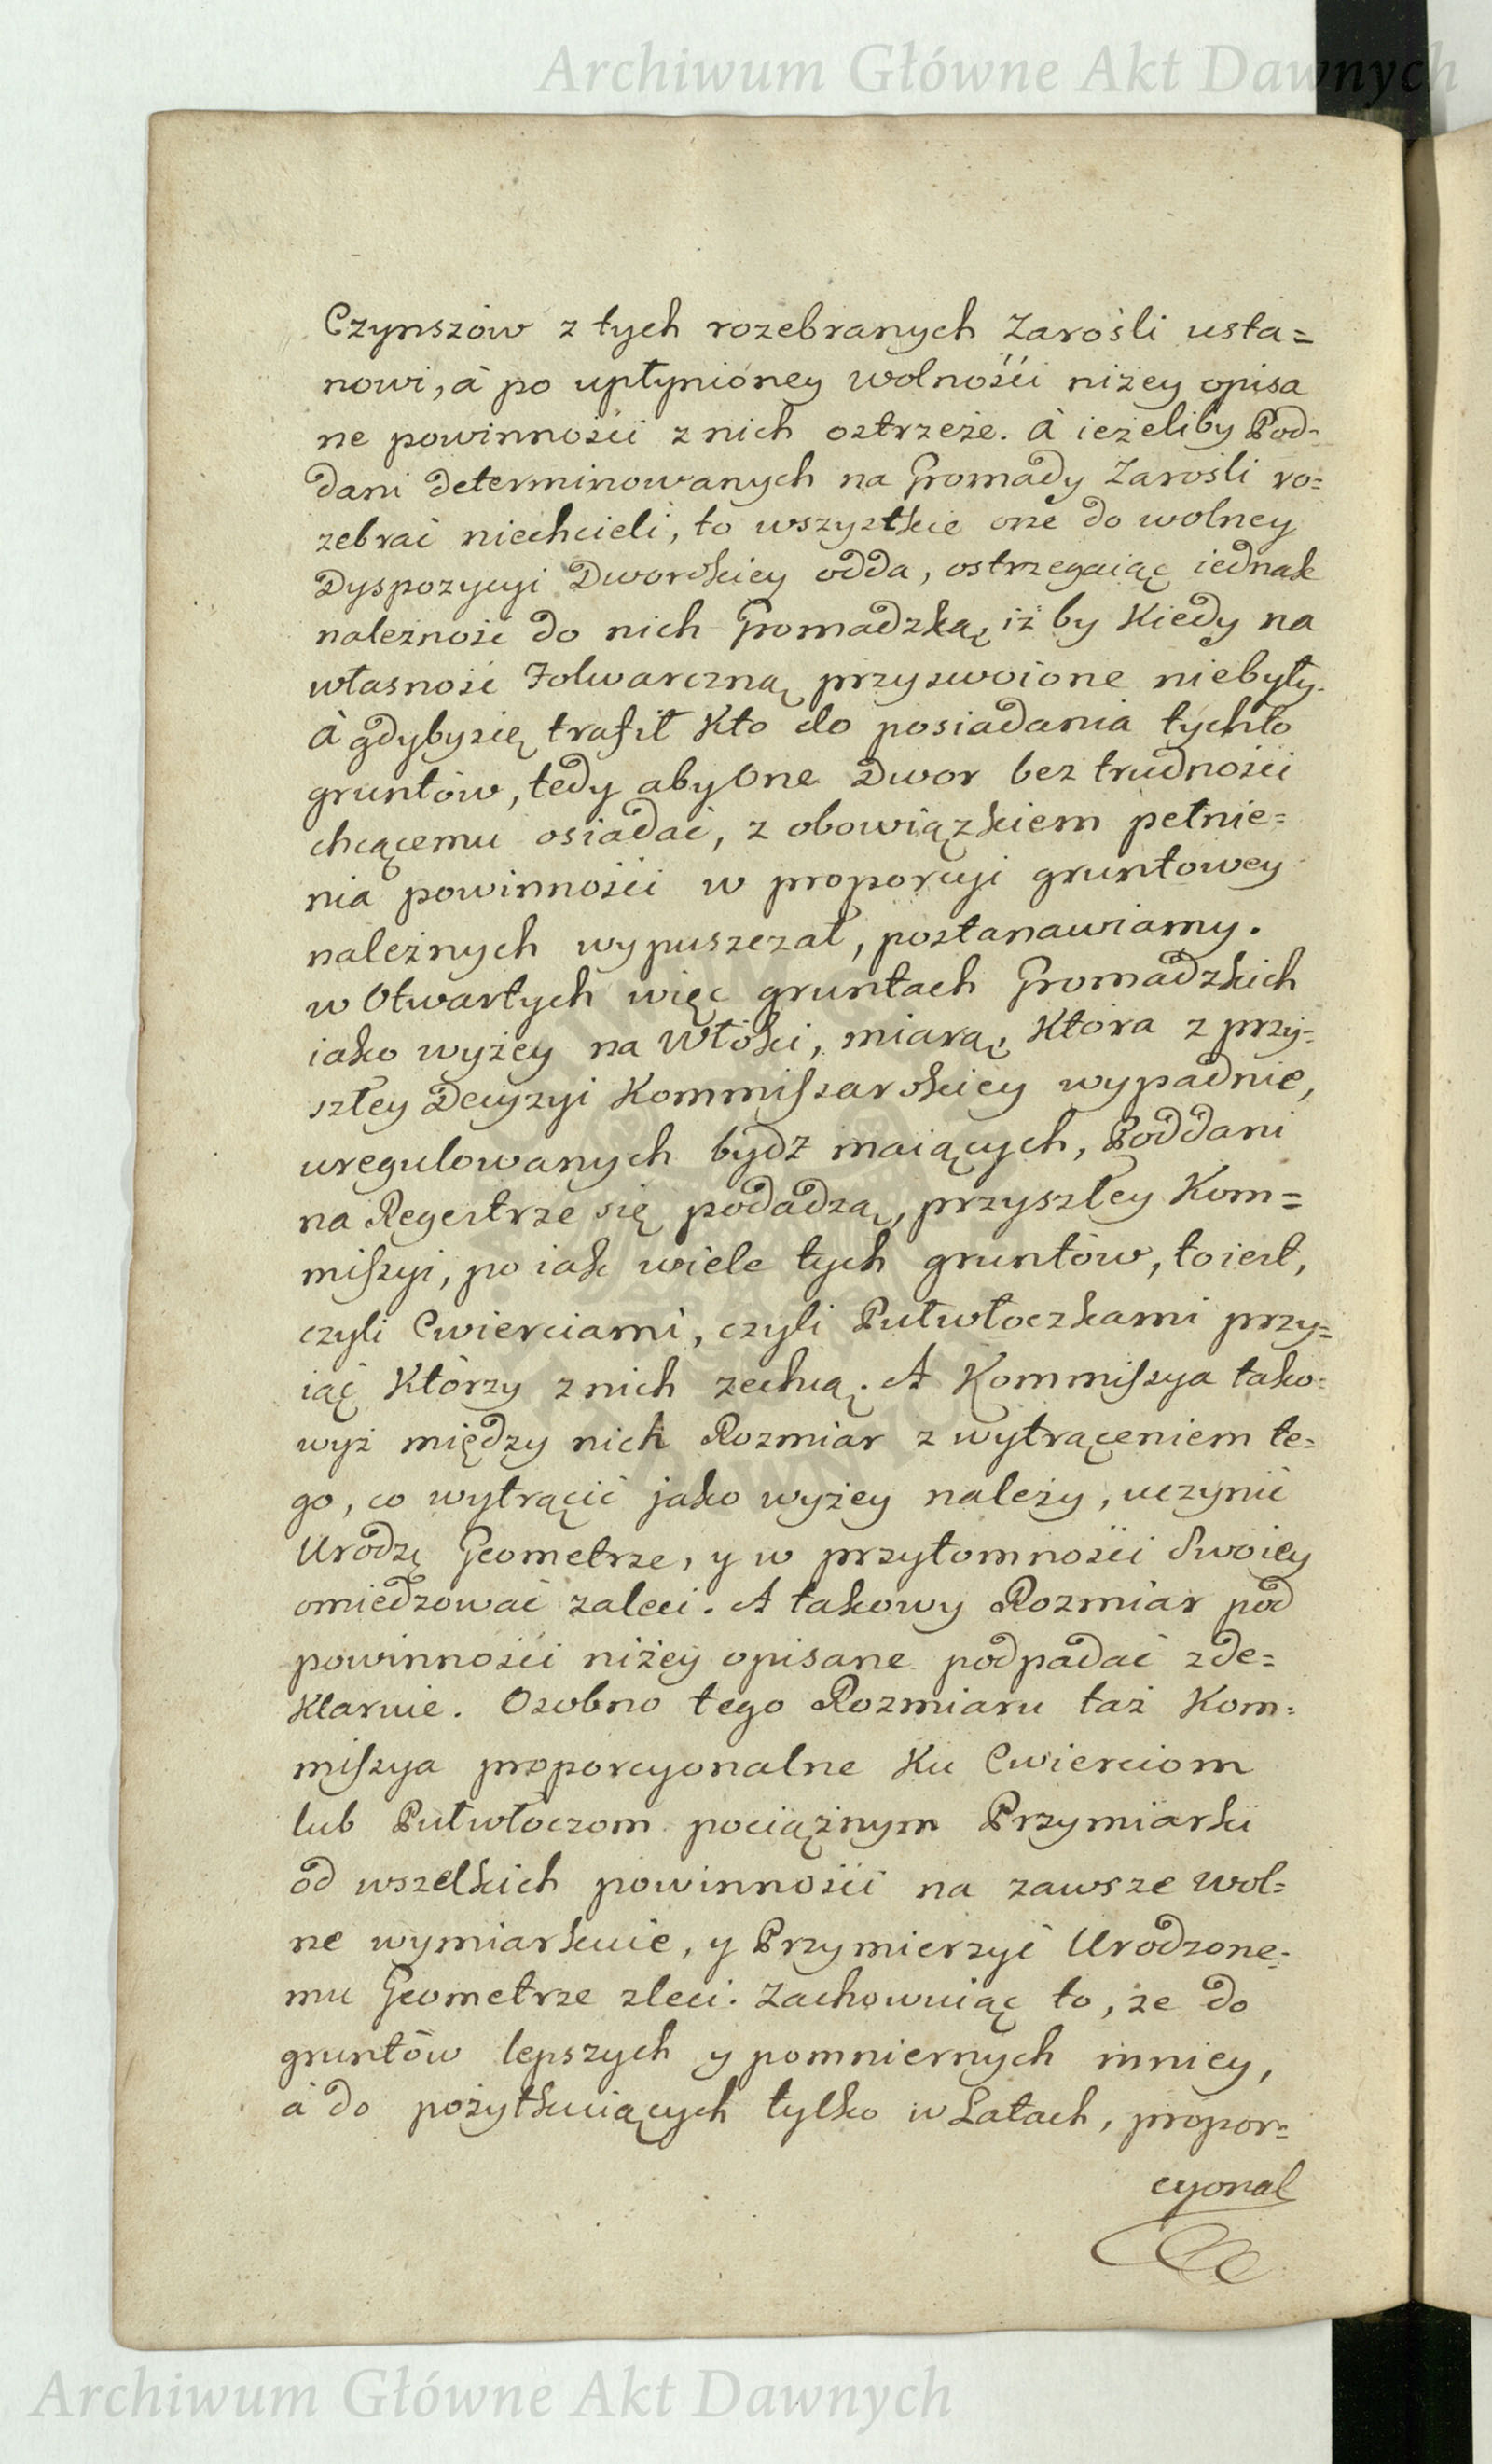 Archiwum Główne Akt Dawnych
Czynszów z tych rozebranych Zarośli usta=
nowi, à po upłynióney wolnośći niżey opisa
ne powinnośći z nich ostrzeże. A ieżeliby Pod=
dani determinowanych na Gromady Zarośli ro=
zebrać niechcieli, to wszystkie one do wolney
Dyspozycyi Dworskiey odda, ostrzegaiąc iednak
należność do nich Gromadzką, iż by kiedy na
własność Folwarczną przyswoione niebyły.
A gdybysię trafił kto do posiadania tychto
gruntów, tedy aby One Dwor bez trudnośći
chcącemu osiadać, z obowiązkiem pełnie=
nia powinnośći w proporcyi gruntowey
należnych wypuszczał, postanawiamy.
w Otwartych więc gruntach Gromadzkich
iako wyżey na Włóki, miarą, która z przy=
szłey Decyzyi Kommissarskiey wypadnie,
uregulowanych bydź maiących, Poddani
na Regestrze się podadzą, przyszłey Kom=
missyi, po iak wiele tych gruntów, toiest,
czyli Cwierciami, czyli Pułwłoczkami przy=
iąć którzy z nich zechcą. A Kommissya tako=
wyż między nich Rozmiar z wytrąceniem te=
go, co wytrącić jako wyżey należy, uczynić
Urodzę Geometrze, y w przytomnośći Swoiey
omiedzować zaleci. A takowy Rozmiar pod
powinnośći niżey opisane podpadać zde=
klaruie. Osobno tego Rozmiaru taż Kom=
missya proporcyonalne ku Cwierciom
lub Pułwłoczom pociążnym Przymiarki
od wszelkich powinnośći na zawsze wol=
ne wymiarkuie, y Przymierzyć Urodzone=
mu Geometrze zleci. Zachowuiąc to, że do
gruntów lepszych y pomniernych mniey,
à do pożytkuiących tylko w Latach, propor=
cyonal
Archiwum Główne Akt Dawnych